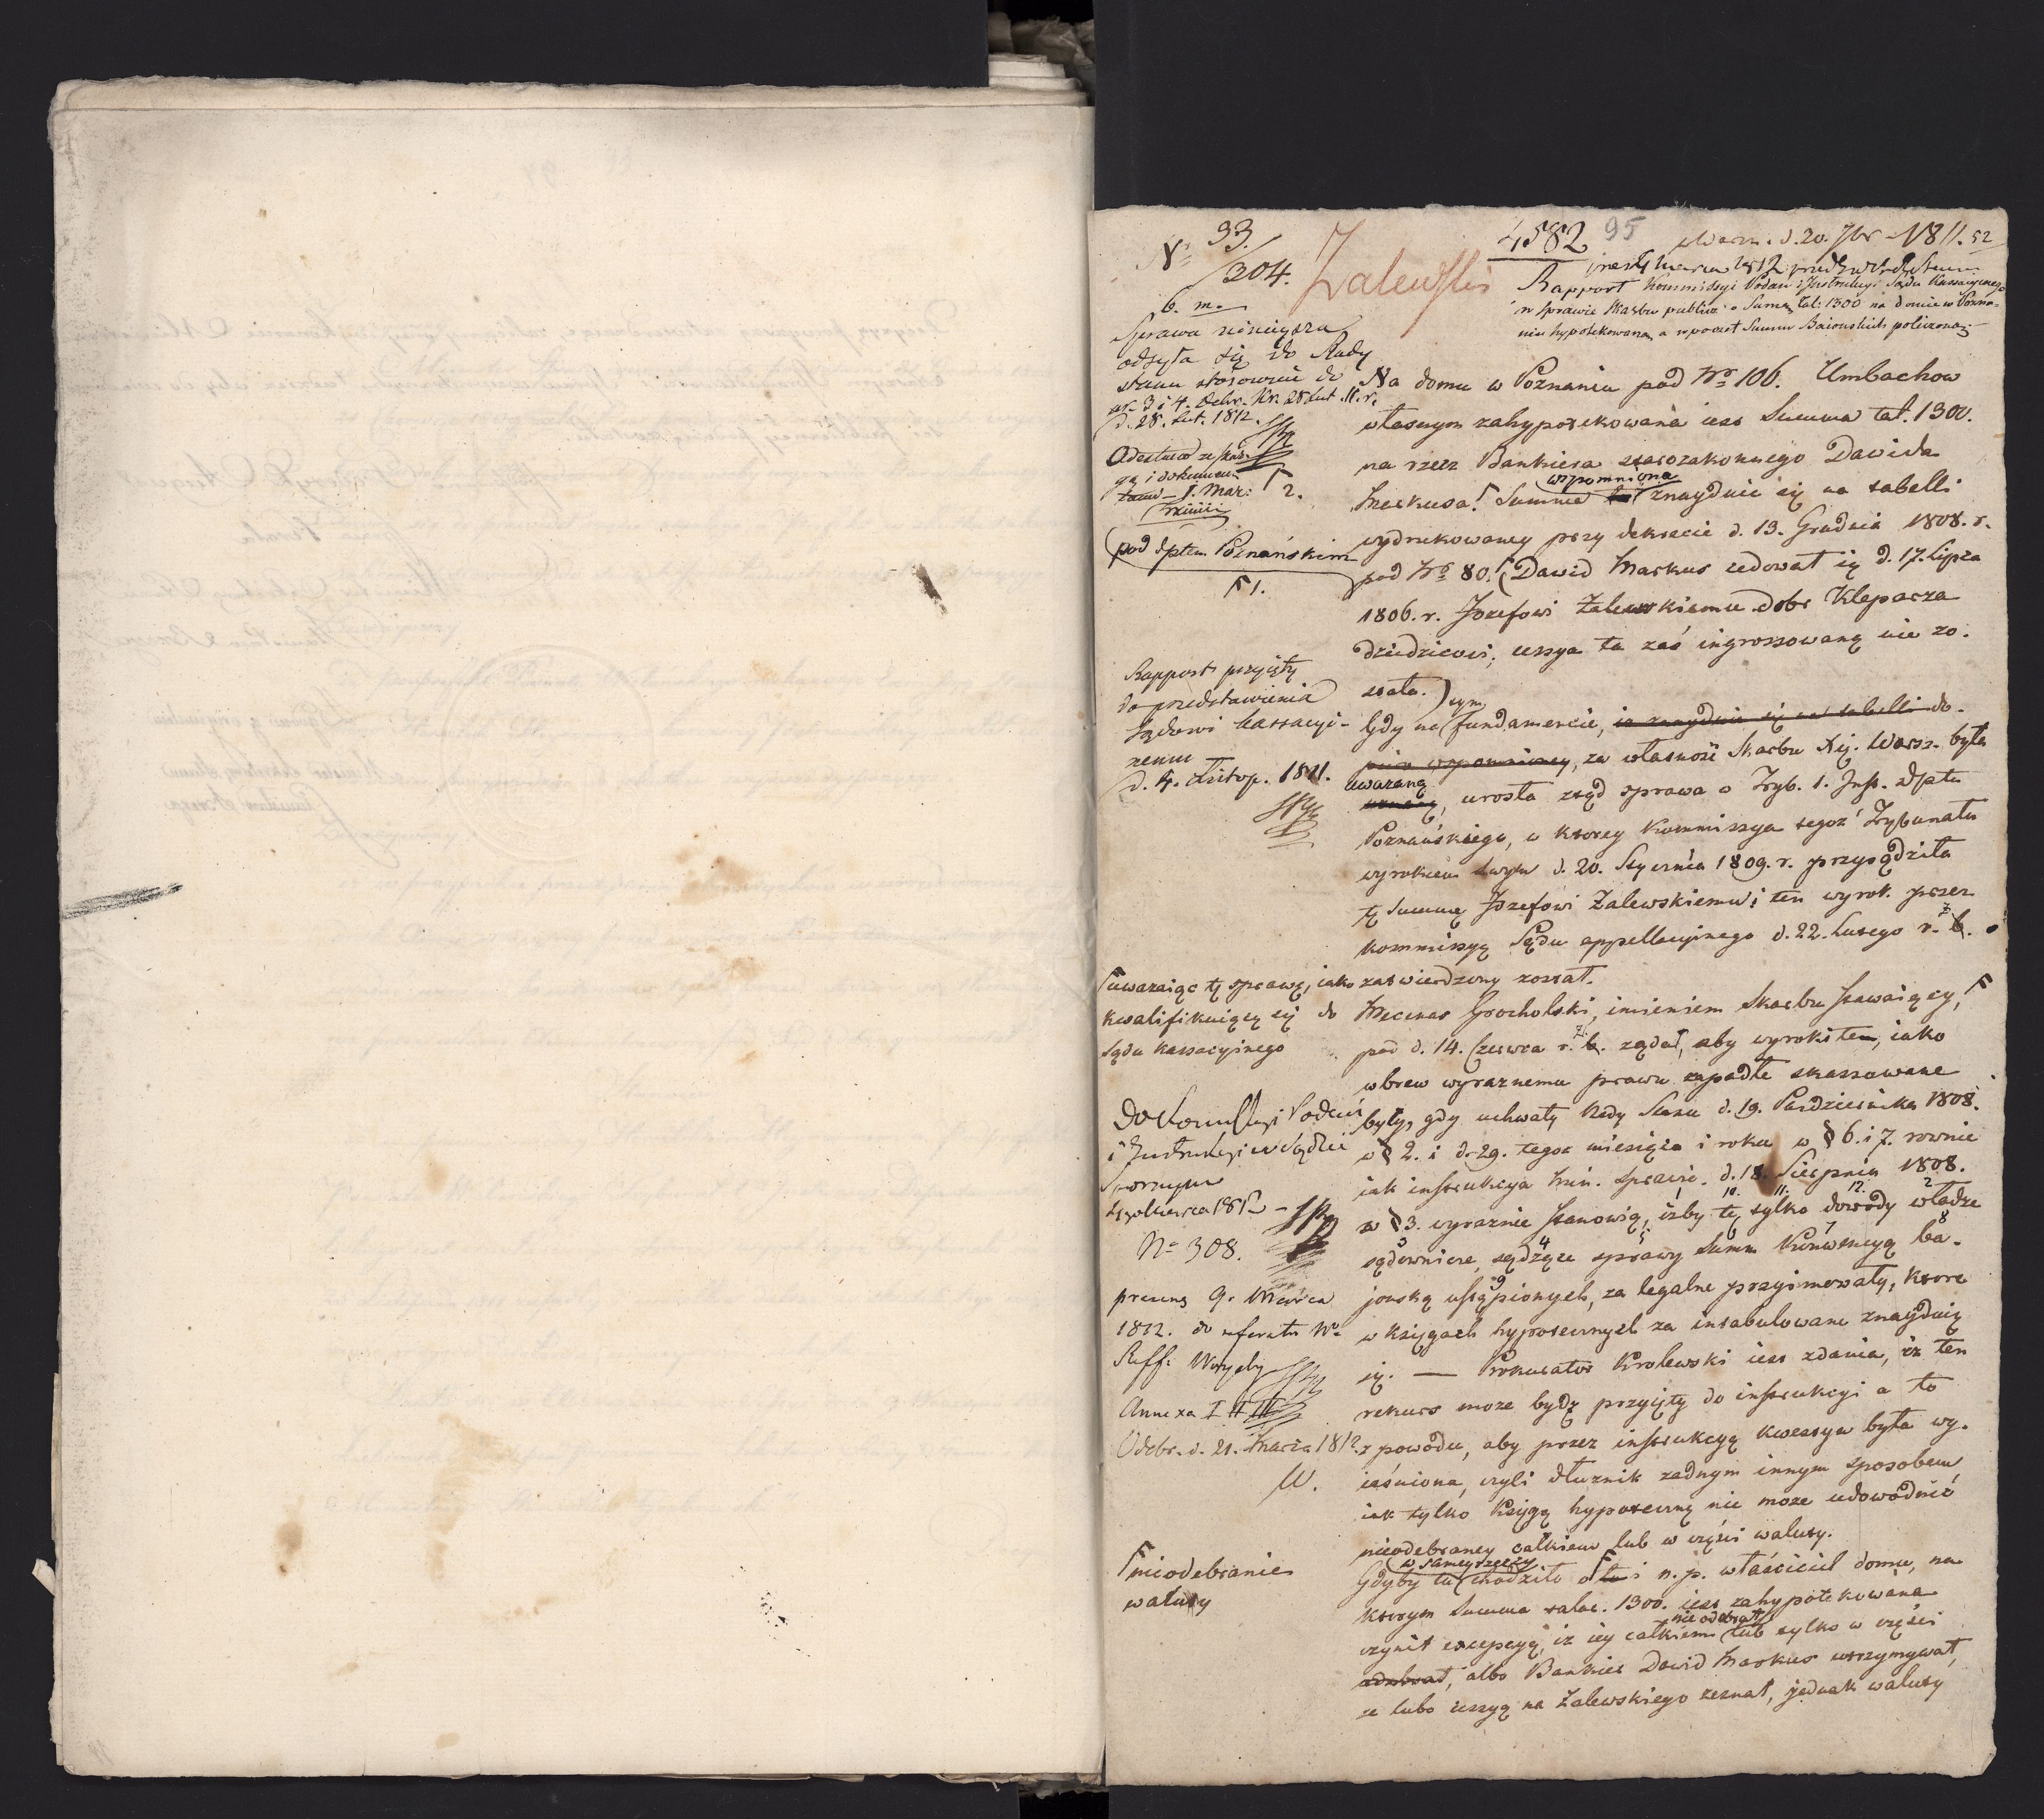 № 33/304.
Zalewski
4582 95
d. 20. 7br 1811. 52
Rapport Kommissyi Podań i Instrukcyi Sądu Kassacyinego
w sprawie Skarbu publicz: o Summę tal: 1300 na domie w Pozna-
niu hypotekowaną a w poczet Summ Baiońskich policzoną.
b. m.
Sprawa ninieysza
odsyła się do Rady
stanu stosownie do
ar. 3 i 4. dekr. Kr. 28 Lut. r.
d. 28. Lut. 1812.
i dokumen-
1. Mar:
2.
pod dptem Poznańskim
1.
Rapport przyięty
do przedstawienia
Sądowi kassacyi-
nemu
d. 4. Listop. 1811.
uważaiąc tę sprawę, iako
kwalifikuiącą się do
Sądu kassacyinego
Do Kommissyi Podań
i Instrukcyi w Sądzie
1812
№ 308.
praesens 9. Marca
1812. do referatu Wo
Reff:
Annexa I II III
Odebr. d. 21. Marca 1812.
W.
nieodebranie
waluty
Na domu w Poznaniu pod № 106. Umbachow
własnym zahypotekowana iest Summa tal. 1300.
na rzecz Bankiera starozakonnego Dawida
Markusa. Summa wspomniona znayduie się na tabelli
wydrukowaney przy dekrecie d. 13. Grudnia 1808. r.
pod № 80. Dawid Markus cedował ią d. 17. Lipca
1806. r. Jozefowi Zalewskiemu dobr Klepacza
dziedzicowi; cessya ta zaś ingrossowaną nie zo-
stała.
Gdy na tym fundamencie, iż znayduie się na tabelli do-
piero wspomnioney, za własność Skarbu Xię. Warsz. była
uważaną, urosła ztąd sprawa o Tryb. 1. Inst. Dptu
Poznańskiego, w ktorey Kommissya tegoż Trybunału
wyrokiem swym d. 20. Stycznia 1809. r. przysądziła
tę Summę Jozefowi Zalewskiemu; ten wyrok przez
kommissyą Sądu appellacyinego d. 22. Lutego r. z.
zatwierdzony został.
Mecenas Grocholski, imieniem Skarbu stawaiący,
pod d. 14. Czerwca r. z. żądał, aby wyroki te, iako
wbrew wyraznemu prawu zapadłe skassowane
były, gdy uchwały Rady Stanu d. 19. Pazdziernika 1808.
w § 2. i d. 29. tegoż miesiąca i roku w § 6. i 7. rownie
iak instrukcya Min. Sprawie. d. 18. Sierpnia 1808.
w § 3. wyraznie stanowią, iżby te tylko dowody władze
1 10. 11. 12. 2
sądownicze, sądzące sprawy Summ Konwencyą ba-
3 4 5 7 8
jońską ustąpionych, za legalne przyimowały, ktore
9
w księgach hypotecznych za intabulowane znayduią
się. — Prokurator Krolewski iest zdania, iż ten
rekurs może bydź przyięty do instrukcyi a to
z powodu, aby przez instrukcyą kwestya była wy-
iaśniona, czyli dłużnik żadnym innym sposobem
iak tylko Księgą hypoteczną nie może udowodnić
nieodebraney całkiem lub w części waluty.
Gdyby tu w samey rzeczy chodziło o to i n. p. właściciel domu, na
ktorym Summa talar. 1300. iest zahypotekowana
czynił excepcyą, iż iey całkiem nie odebrał lub tylko w części
odebrał, albo Bankier Dawid Markus utrzymywał,
że lubo cessyą na Zalewskiego zeznał, jednak waluty